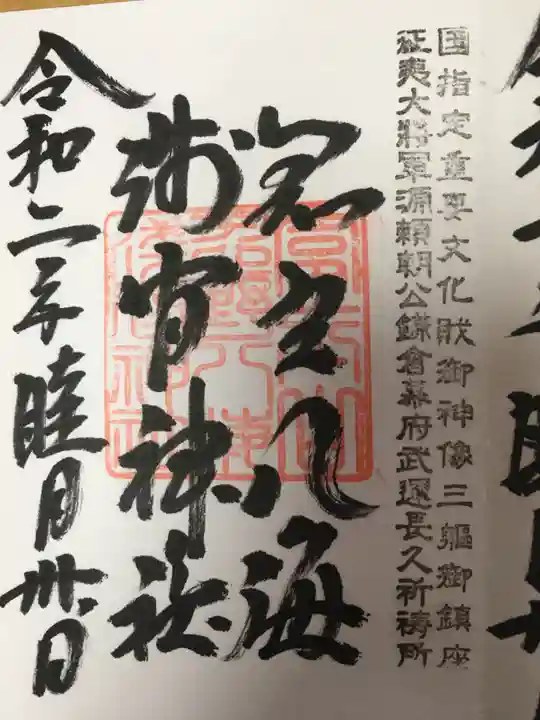 国指定重要文化財御神像三軀御鎮座
征夷大将軍源頼朝公鎌倉幕府武運長久祈祷所
之八海
浅間神社
令和二年睦月卅日